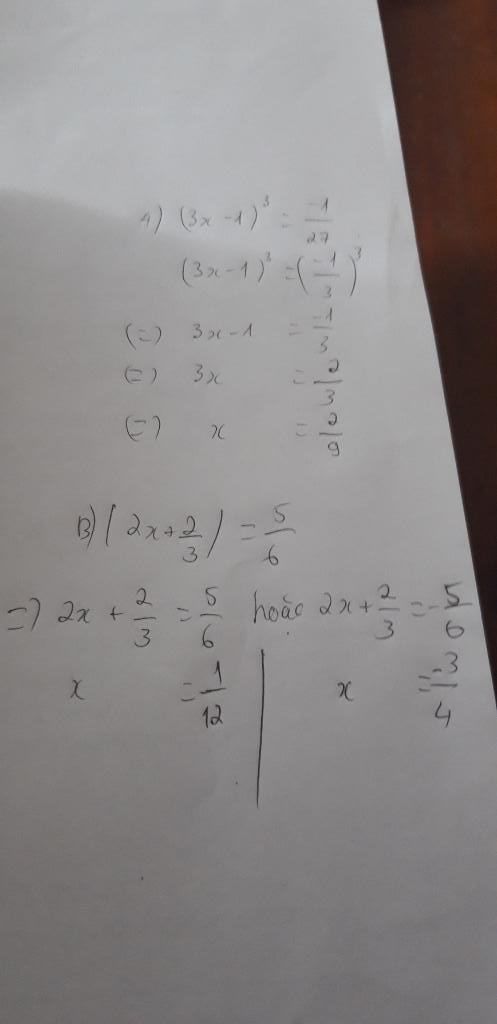 A) (3x-1)³ = -1/27
(3x-1)³ = (-1/3)³
(=) 3x-1 = -1/3
(=) 3x = 2/3
(=) x = 2/9
B) |2x+2/3| = 5/6
=) 2x + 2/3 = 5/6 hoặc 2x + 2/3 = -5/6
x = 1/12 | x = -3/4